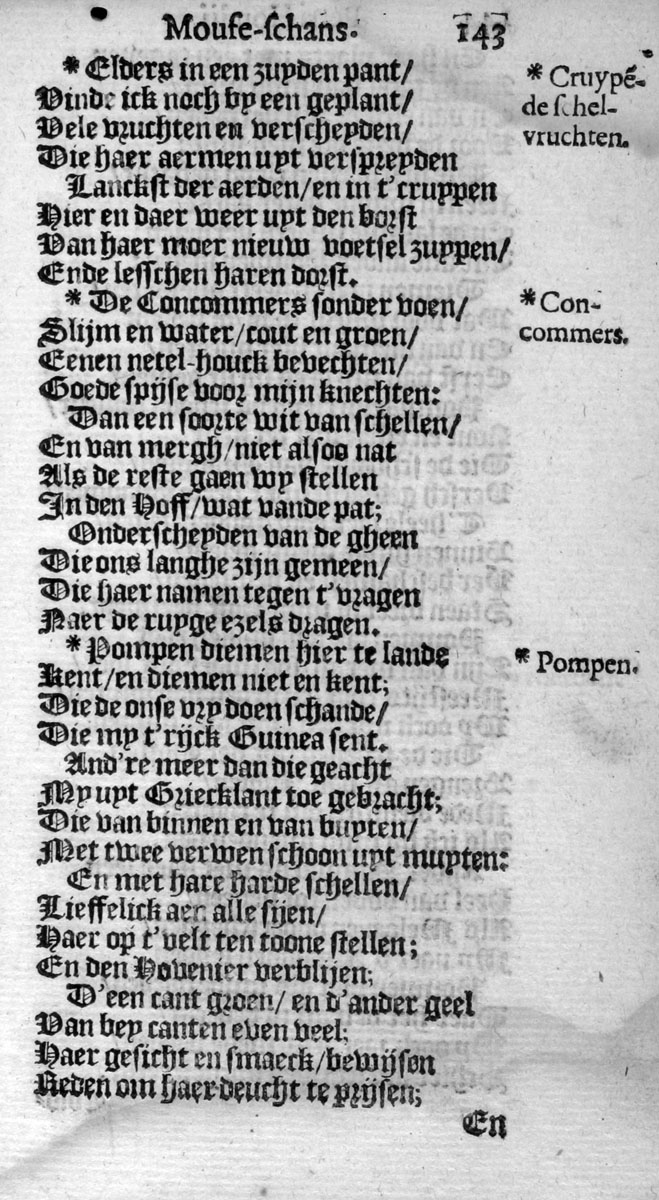 Moufe-schans. 143
* Elders in een zuyden pant/
Vinde ick noch by een geplant/
Vele vruchten en verscheyden/
Die haer aermen uyt verspreyden
Lanckst der aerden/en in t'cruypen
Hier en daer weer uyt den borst
Van haer moer nieuw voetsel zuypen/
Ende lesschen haren dorst.
* De Concommers sonder voen/
Slijm en water/cout en groen/
Eenen netel-houck bevechten/
Goede spijse voor mijn knechten:
Dan een soorte wit van schellen/
En van mergh/niet alsoo nat
Als de reste gaen wy stellen
In den Hoff/wat vande pat;
Onderscheyden van de gheen
Die ons langhe zijn gemeen/
Die haer namen tegen t'vragen
Naer de ruyge ezels dragen.
* Pompen diemen hier te lande
Kent/en diemen niet en kent;
Die de onse vry doen schande/
Die my t'rijck Guinea sent.
And're meer dan die geacht
My uyt Griecklant toe gebracht;
Die van binnen en van buyten/
Met twee verwen schoon uyt muyten:
En met hare harde schellen/
Lieffelick aen alle sijen/
Haer op t'velt ten toone stellen;
En den Hovenier verblijen;
D'een cant groen/ en d'ander geel
Van bey canten even veel;
Haer gesicht en smaeck/bewijsen
Reden om haer deucht te prijsen;
En
* Cruypē-
de schel-
vruchten.
* Con-
commers.
* Pompen.